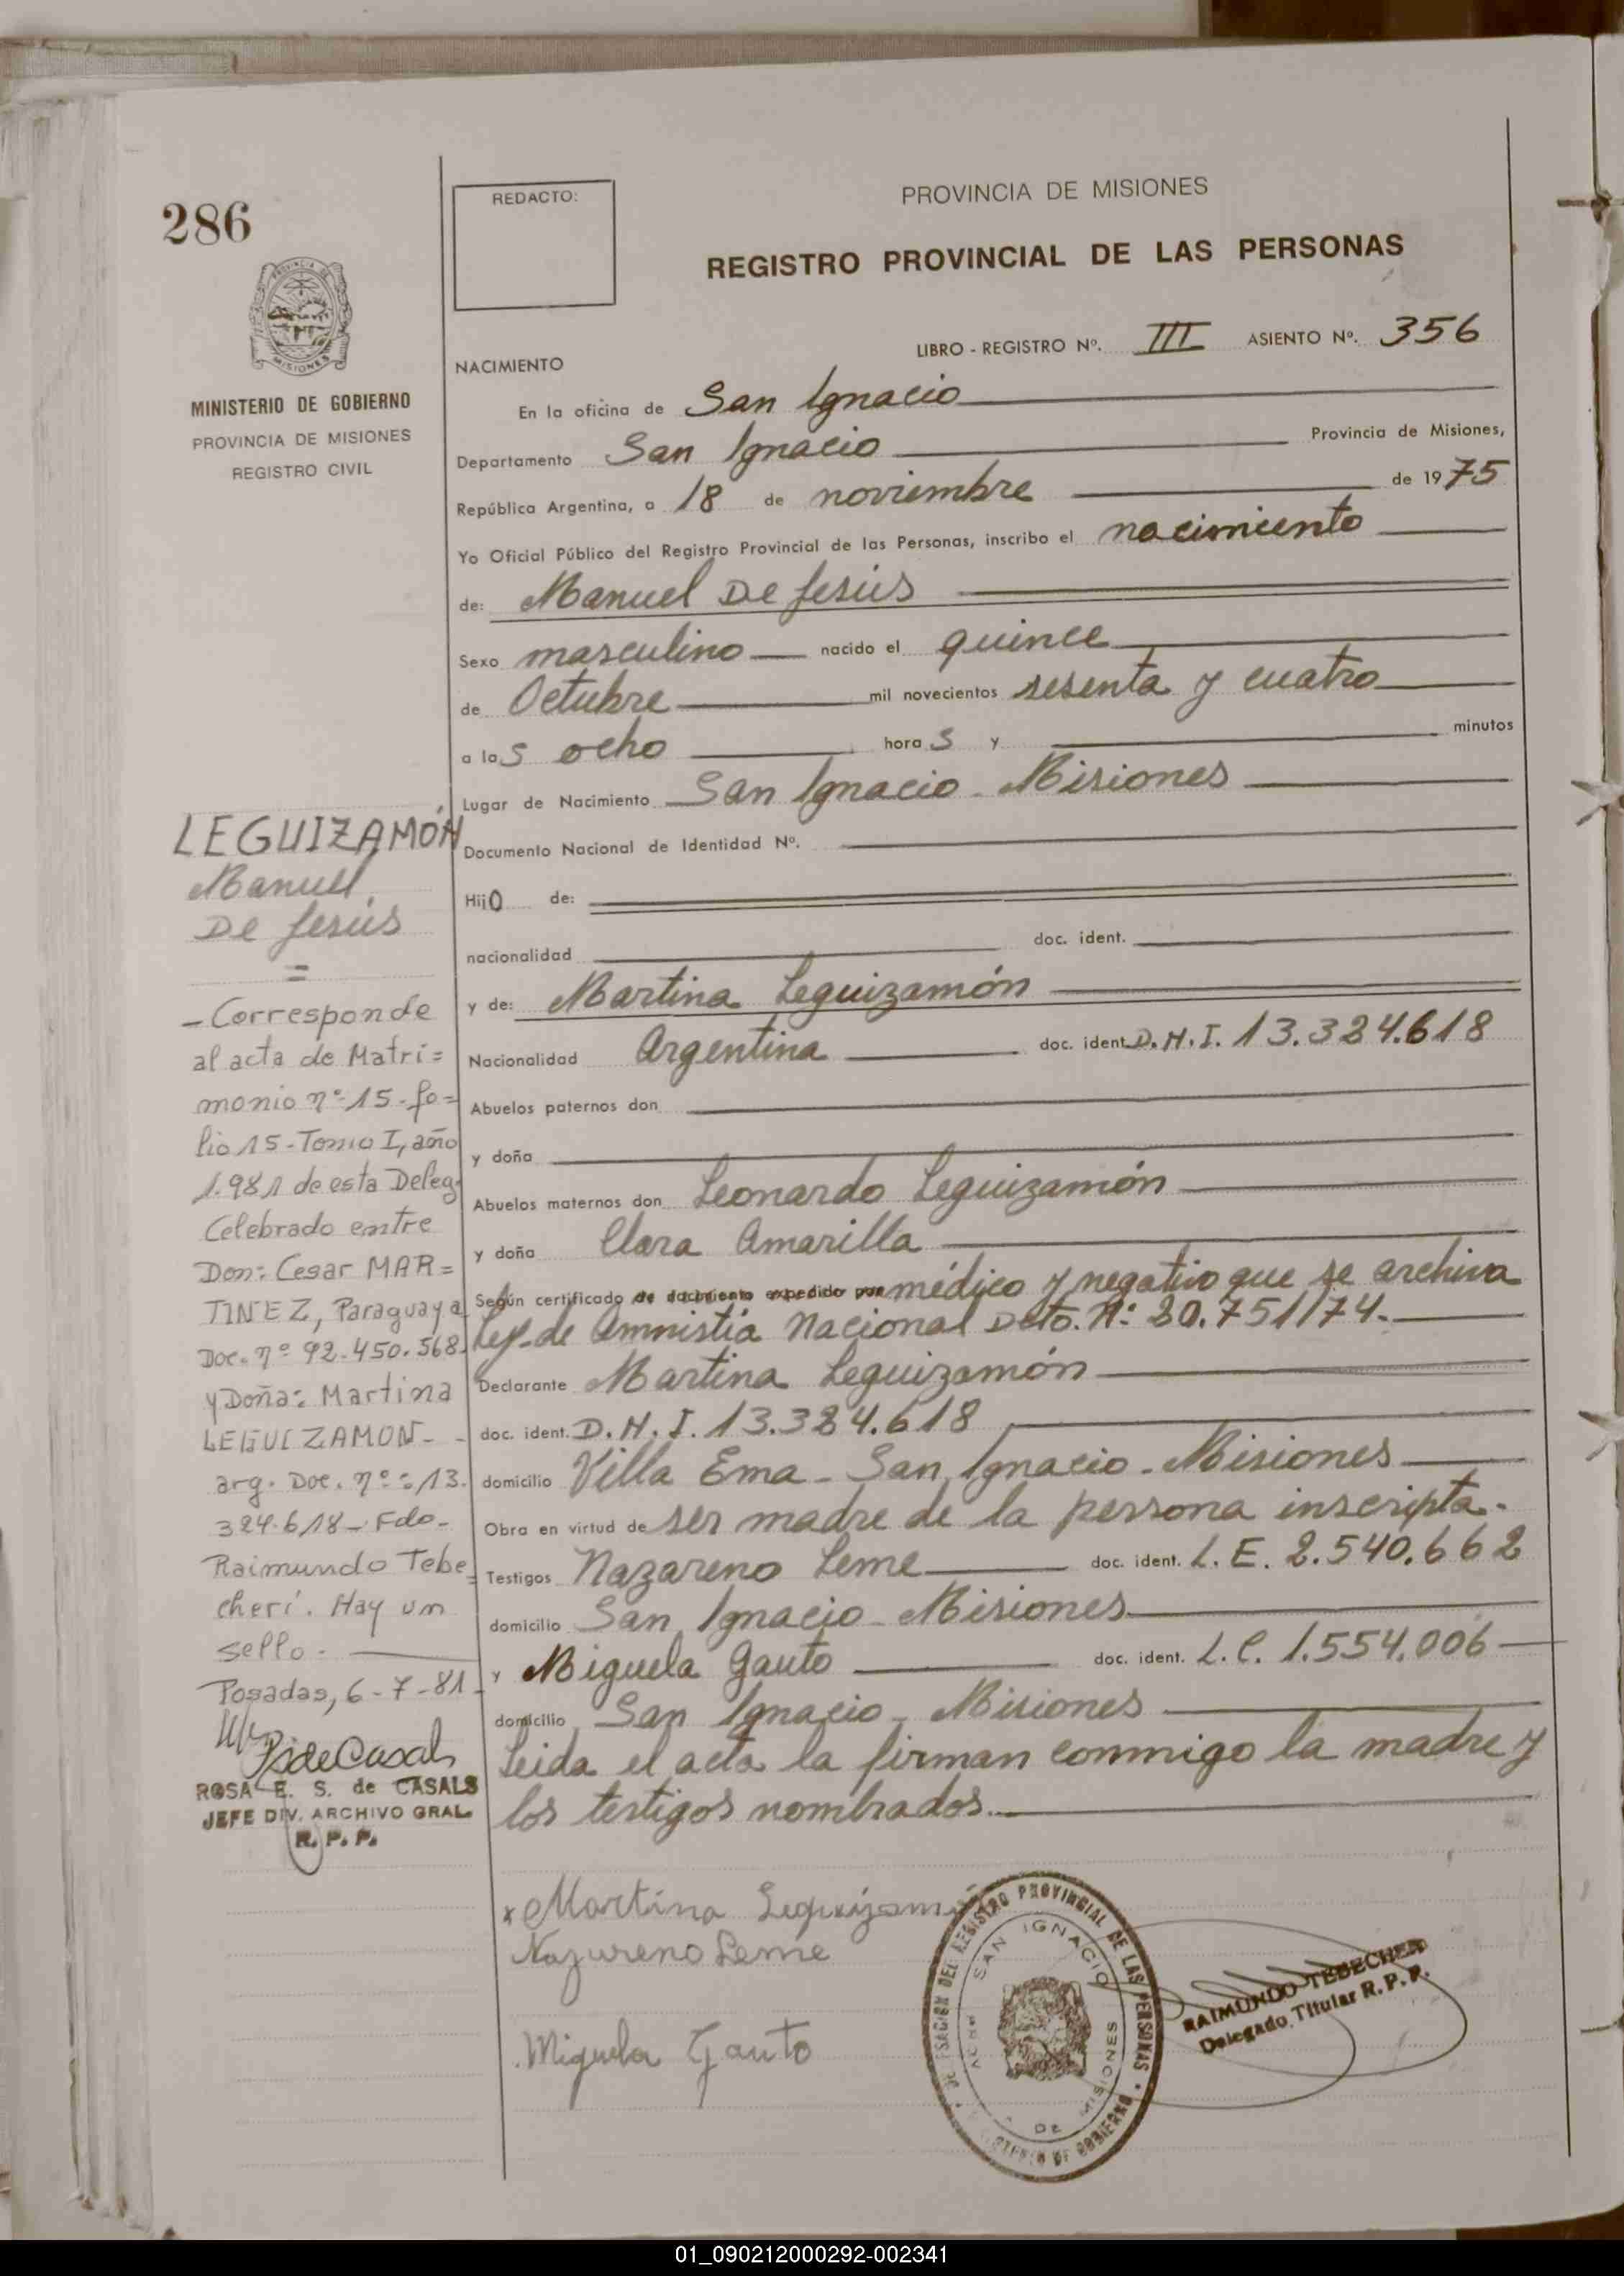 286
REDACTO:
PROVINCIA DE MISIONES
REGISTRO PROVINCIAL DE LAS PERSONAS
MINISTERIO DE GOBIERNO
PROVINCIA DE MISIONES
REGISTRO CIVIL
LIBRO - REGISTRO Nº. III ASIENTO Nº. 356
NACIMIENTO
En la oficina de San Ignacio
Departamento San Ignacio Provincia de Misiones,
República Argentina, a 18 de noviembre de 1975
Yo Oficial Público del Registro Provincial de las Personas, inscribo el nacimiento
de: Manuel De Jesús
Sexo masculino nacido el quince
de Octubre mil novecientos sesenta y cuatro
a las ocho horas y minutos
Lugar de Nacimiento San Ignacio - Misiones
Documento Nacional de Identidad Nº.
Hijo de:
nacionalidad doc. ident.
y de: Martina Leguizamón
Nacionalidad Argentina doc. ident. D.N.I. 13.324.618
Abuelos paternos don
y doña
Abuelos maternos don Leonardo Leguizamón
y doña Clara Amarilla
Según certificado de nacimiento expedido por médico y negativo que se archiva
Ley de Amnistia Nacional Dcto. Nº 20.751/74.
Declarante Martina Leguizamón
doc. ident. D.N.I. 13.324.618
domicilio Villa Ema - San Ignacio - Misiones
Obra en virtud de ser madre de la persona inscripta.
Testigos Nazareno Leme doc. ident. L.E. 2.540.662
domicilio San Ignacio - Misiones
y Miguela Gauto doc. ident. L.C. 1.554.006
domicilio San Ignacio - Misiones
Leida el acta la firman conmigo la madre y
los testigos nombrados.
LEGUIZAMÓN,
Manuel
De Jesús
=
- Corresponde
al acta de Matri=
monio nº 15 - fo=
lio 15 - Tomo I, año
1.981 de esta Deleg.
Celebrado entre
Don: Cesar MAR=
TINEZ, Paraguaya
Doc. nº 92.450.568.
y Doña: Martina
LEGUIZAMON -
arg. Doc. nº: 13.
324.618 - Fdo -
Raimundo Tebe=
cheri. Hay un
sello.
Posadas, 6-7-81
ROSA E. S. de CASALS
JEFE DIV. ARCHIVO GRAL.
R. P. P.
x Martina Leguizamón
Nazareno Leme
Miguela Gauto
DEL REGISTRO PROVINCIAL DE LAS PERSONAS
SAN IGNACIO
DE MISIONES
DE GOBIERNO
RAIMUNDO TEBECHERI
Delegado Titular R.P.P.
01_090212000292-002341